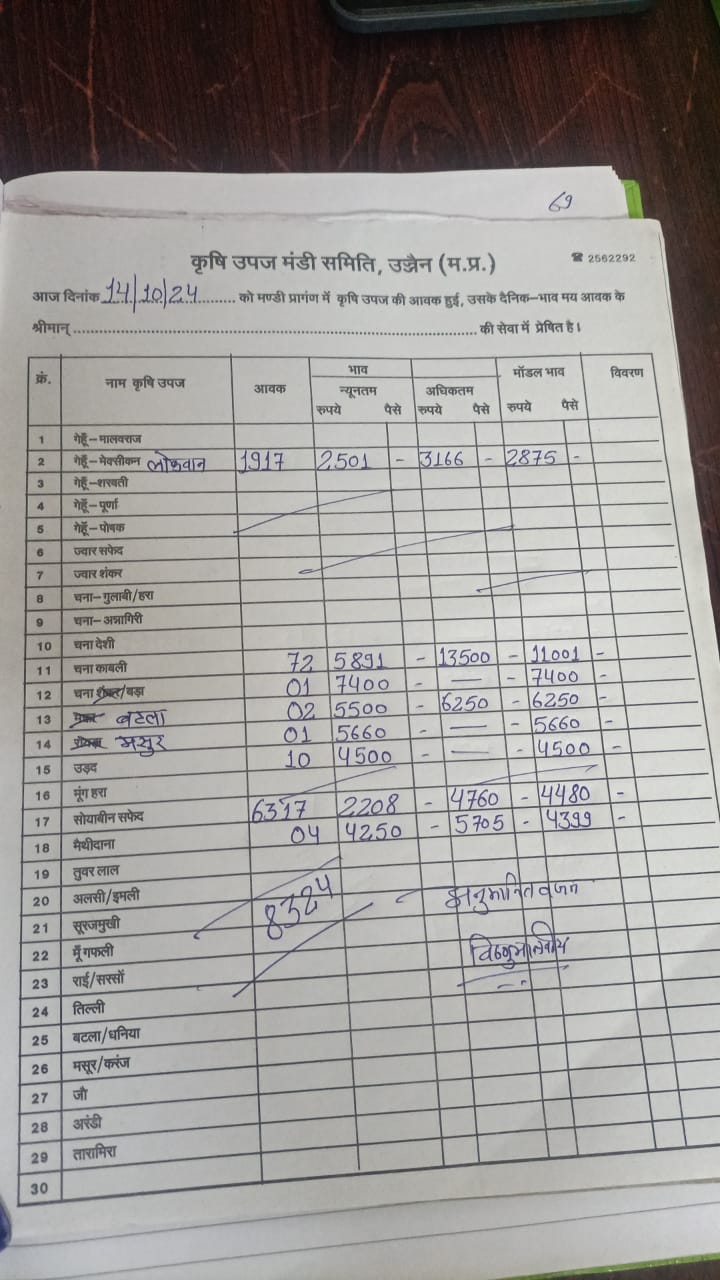 69
कृषि उपज मंडी समिति, उज्जैन (म.प्र.) ☎ 2562292
आज दिनांक 14/10/24 ......... को मण्डी प्रागंण में कृषि उपज की आवक हुई, उसके दैनिक-भाव मय आवक के
श्रीमान् ........................................ की सेवा में प्रेषित है।
क्रं. नाम कृषि उपज आवक भाव मॉडल भाव विवरण
न्यूनतम अधिकतम
रुपये पैसे रुपये पैसे रुपये पैसे
1 गेहूँ-मालवराज
2 गेहूँ-मेक्सीकन लोकवान 1917 2501 - 3166 - 2875 -
3 गेहूँ-शरबती
4 गेहूँ-पूर्णा
5 गेहूँ-पोषक
6 ज्वार सफेद
7 ज्वार शंकर
8 चना-गुलाबी/हरा
9 चना-अन्नागिरी
10 चना देशी
11 चना काबली 72 5891 - 13500 - 11001 -
12 चना शंकर/बड़ा 01 7400 - — - 7400 -
13 बटला 02 5500 - 6250 - 6250 -
14 मसुर 01 5660 - — - 5660 -
15 उड़द 10 4500 - — - 4500 -
16 मूंग हरा
17 सोयाबीन सफेद 6317 2208 - 4760 - 4480 -
18 मैथीदाना 04 4250 - 5705 - 4399 -
19 तुवर लाल
20 अलसी/इमली 8324 अनुमानित वजन
21 सूरजमुखी
22 मूँगफली विष्णु मालवीय
23 राई/सरसों
24 तिल्ली
25 बटला/धनिया
26 मसूर/करंज
27 जौ
28 अरंडी
29 तारामिरा
30